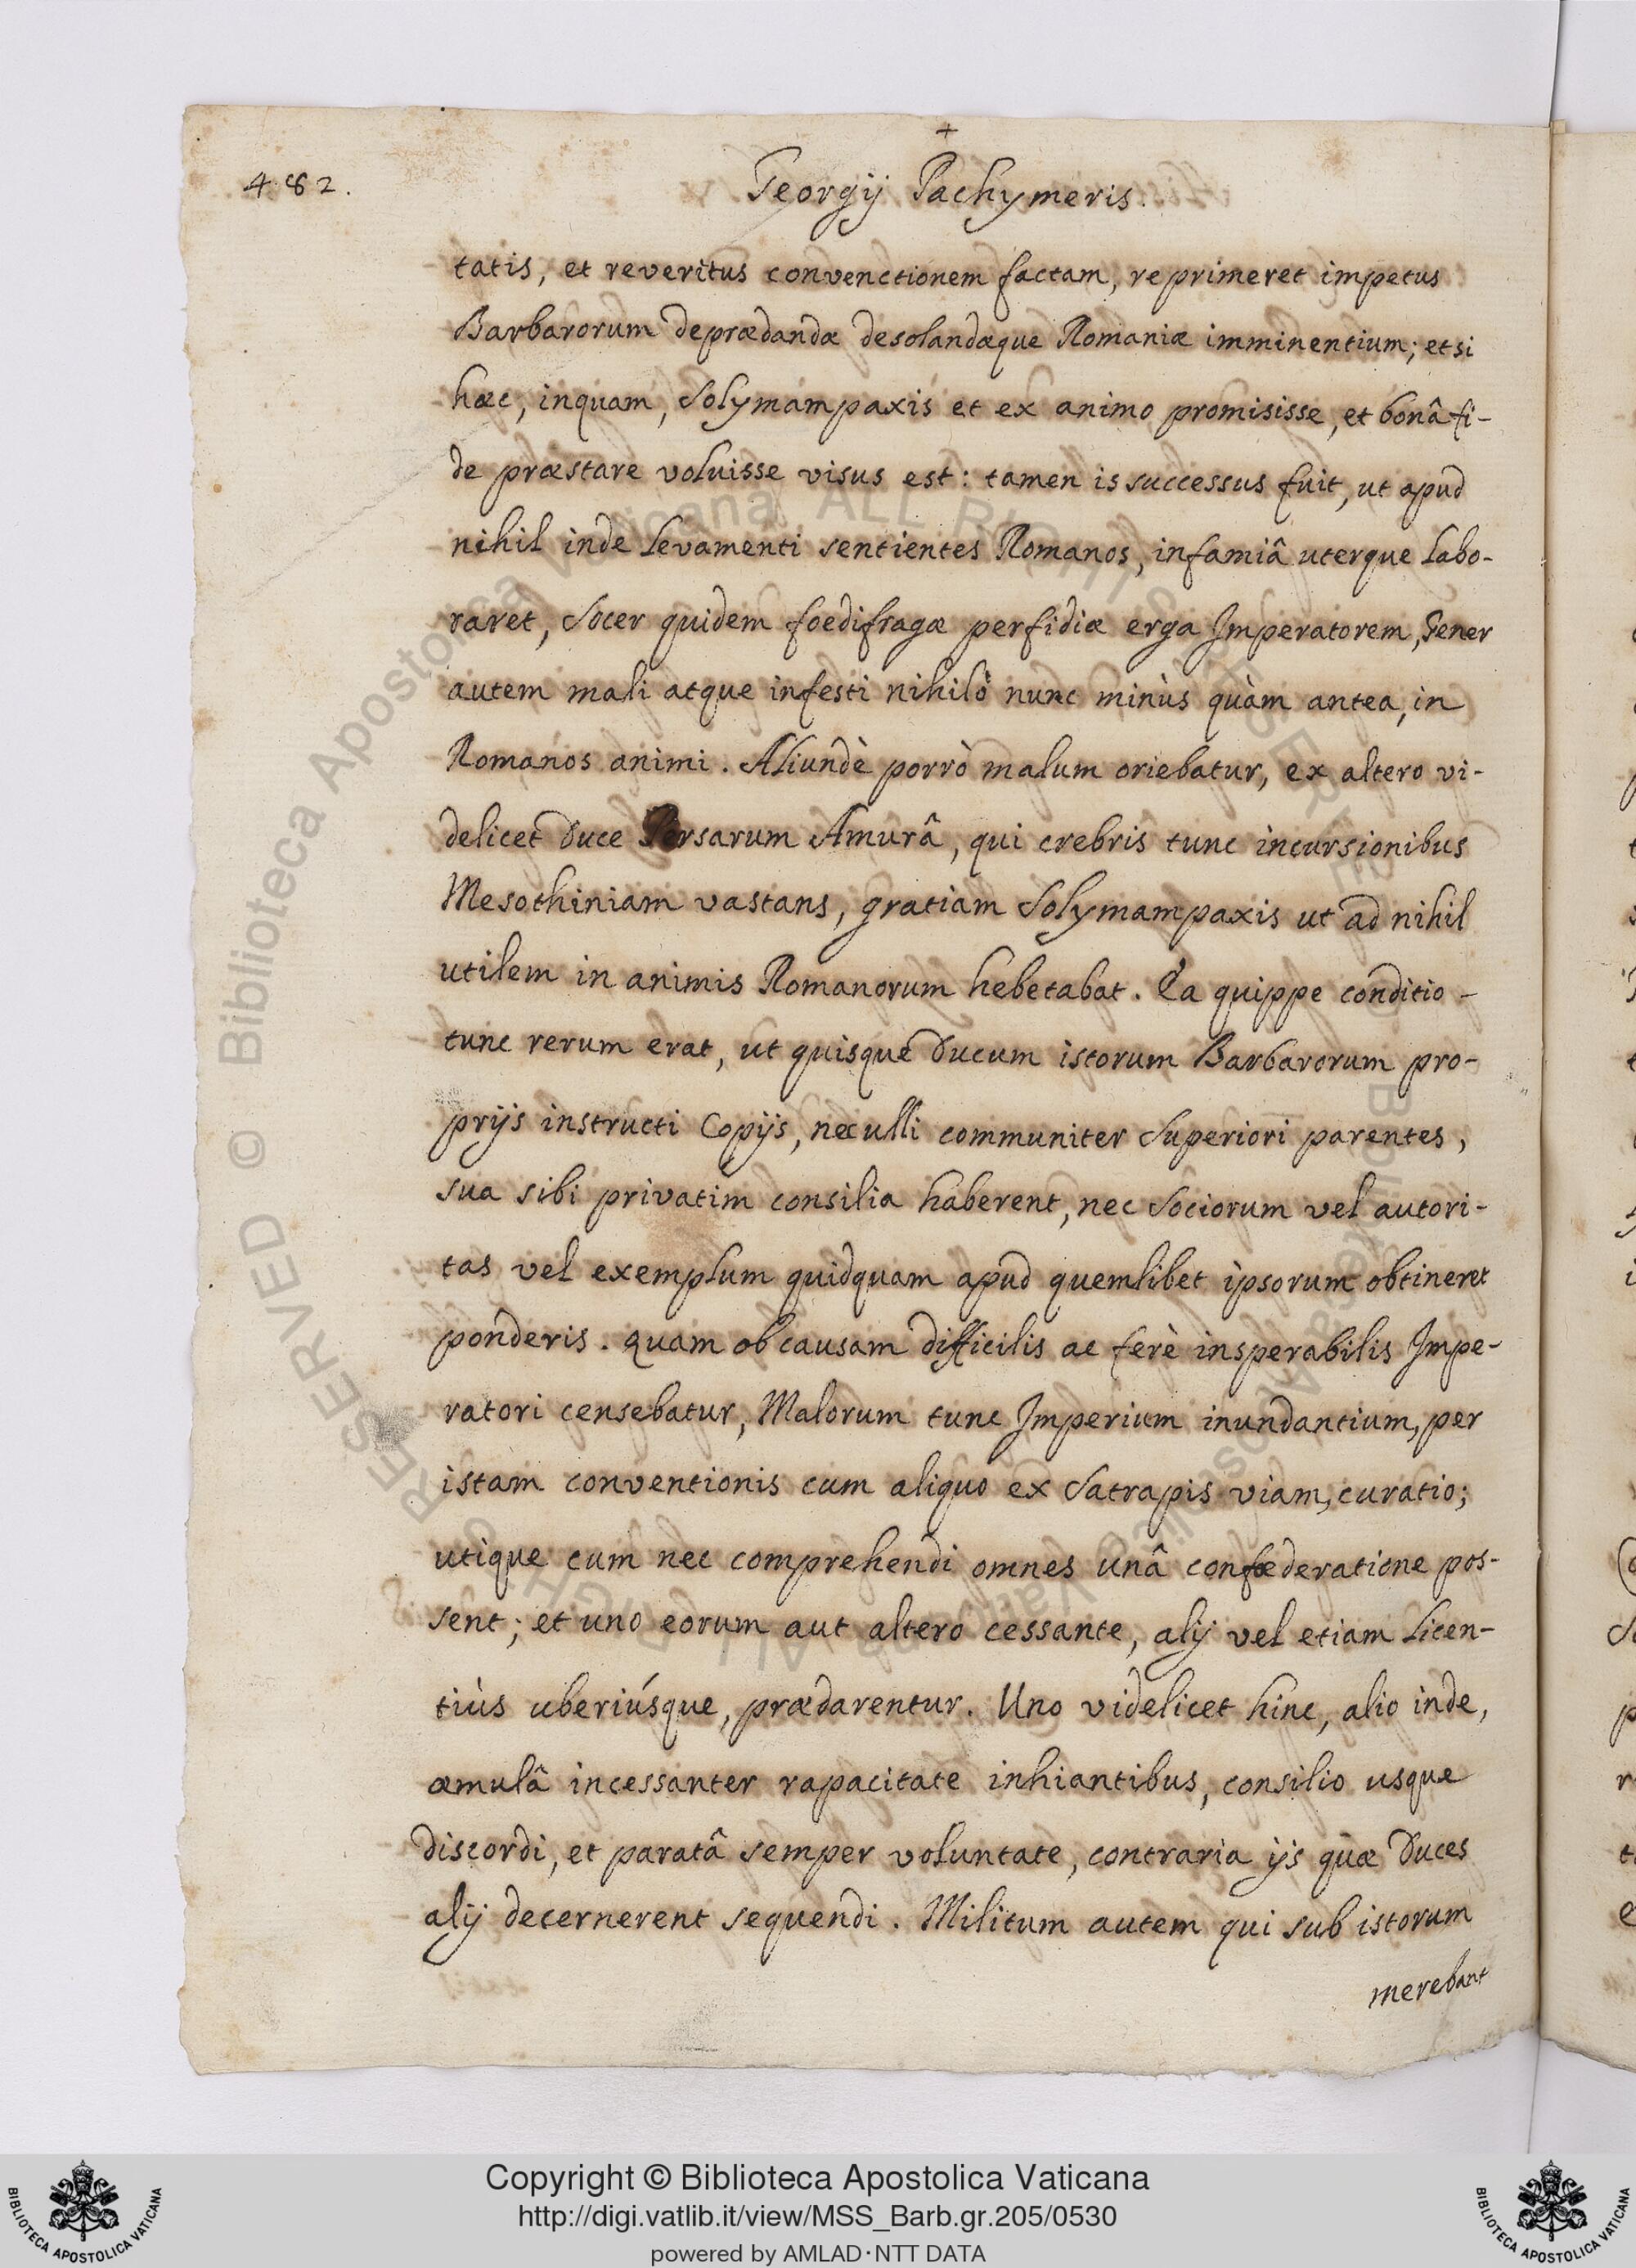 +
482.
Georgij Pachymeris.
tatis, et reveritus convenctionem factam, reprimeret impetus
Barbarorum deprædandæ desolandæque Romaniæ imminentium; et si
hæc, inquam, Solymampaxis et ex animo promisisse, et bonâ fi-
de præstare voluisse visus est: tamen is successus fuit, ut apud
nihil inde levamenti sentientes Romanos, infamiâ uterque labo-
raret, Socer quidem foedifragæ perfidiæ erga Imperatorem, Gener
autem mali atque infesti nihilò nunc minùs quàm antea, in
Romanos animi. Aliundè porrò malum oriebatur, ex altero vi-
delicet Duce Persarum Amurâ, qui crebris tunc incursionibus
Mesothiniam vastans, gratiam Solymampaxis ut ad nihil
utilem in animis Romanorum hebetabat. Ea quippe conditio-
tunc rerum erat, ut quisque Ducum istorum Barbarorum pro-
prijs instructi Copijs, nec ulli communiter Superiori parentes,
sua sibi privatim consilia haberent, nec Sociorum vel autori-
tas vel exemplum quidquam apud quemlibet ipsorum obtineret
ponderis. quam ob causam difficilis ac ferè insperabilis Impe-
ratori censebatur, Malorum tunc Imperium inundantium, per
istam conventionis cum aliquo ex Satrapis viam, curatio;
utique cum nec comprehendi omnes unâ confæderatione pos-
sent; et uno eorum aut altero cessante, alij vel etiam licen-
tiùs uberiúsque, prædarentur. Uno videlicet hinc, alio inde,
æmulâ incessanter rapacitate inhiantibus, consilio usque
discordi, et paratâ semper voluntate, contraria ijs quæ Duces
alij decernerent sequendi. Militum autem qui sub istorum
merebant
Copyright © Biblioteca Apostolica Vaticana
http://digi.vatlib.it/view/MSS_Barb.gr.205/0530
powered by AMLAD·NTT DATA
BIBLIOTECA APOSTOLICA VATICANA
BIBLIOTECA APOSTOLICA VATICANA